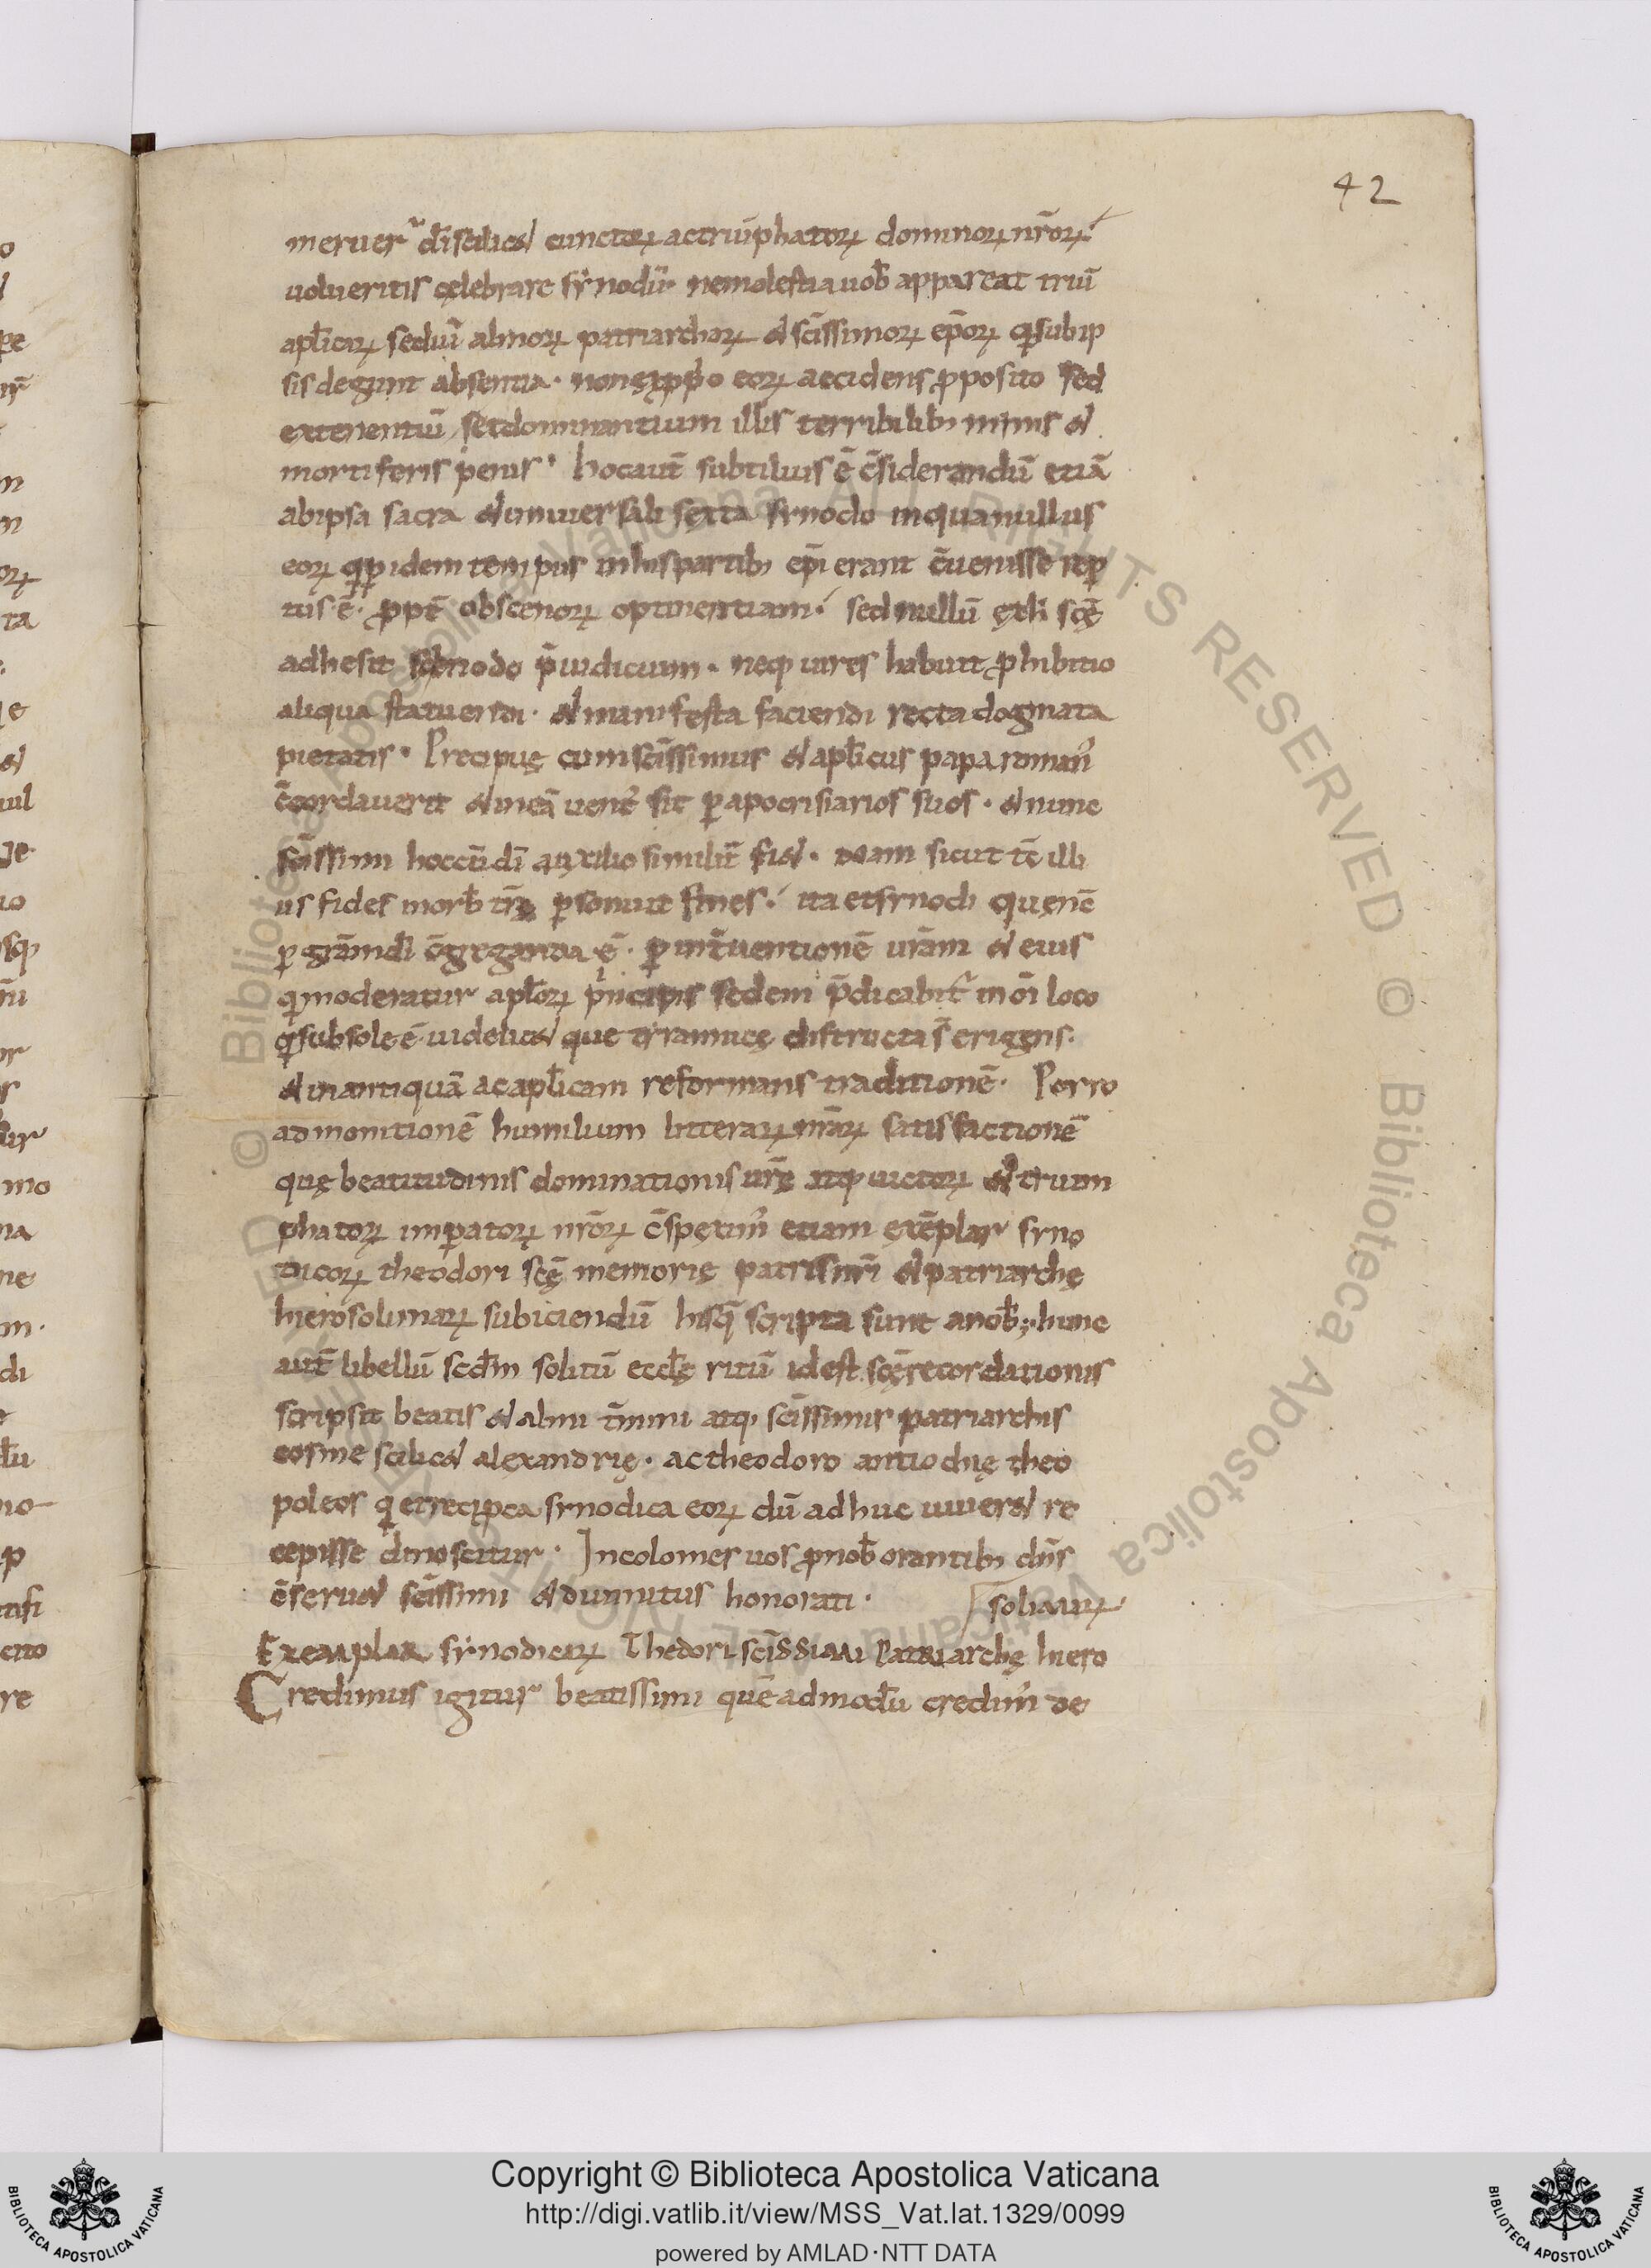 42
meruer̄ dī scilicet cunctoꝝ ac triūphatoꝝ dominoꝝ nr̄oꝝ
uolueritis cęlebrare synodū· ne molestia uob̄ appareat triū
apl̄icaꝝ sediū almoꝝ patriarchoꝝ et sc̄issimoꝝ ep̄oꝝ qui sub ip
sis degunt absentia· non ex eoꝝ accidens ꝓposito sed
ex tenentiū set dominantium illis terribilibꝫ minis et
mortiferis penis· hoc aut̄ subtilius ē c̄siderandū etiā
ab ipsa sacra et uniuersali sexta synodo in qua nullus
eoꝝ qui ꝑ idem tempus in his partibꝫ ep̄i erant c̄uenisse reꝑ
tus ē· ꝓpt̄ obscenoꝝ optinentiam· sed nullū sc̄ę
adhesit synodo p̄iudicium· neqꝫ uires habuit ꝓhibitio
aliqua statuendi· et manifesta faciendi recta dogmata
pietatis· Precipuę cum sc̄issimus et apl̄icus papa roman᾿
c̄cordauerit et in eā uent᾿ sit ꝑ apocrisiarios suos· et nunc
sc̄issimi hoc dī auxilio similit̄ fiet· nam sicut illi
us fides in orb̄ tr̄ę ꝑsonuit fines· ita et synodi quę nc̄
ꝑ gr̄am dī c̄greganda ē· ꝑ int̄uentionē ur̄am et eius
qui moderatur apl̄oꝝ principis sedem p̄dicabit᾿ in om̄i loco
qui sub sole ē uidelicet que tyrannicę distructa s̄ erigens·
et in antiquā ac apl̄icam reformans traditionē· Porro
ad monitionē humilium litteraꝝ nr̄aꝝ satisfactionē
quę beatitudinis dominationis ur̄ę atqꝫ uictoꝝ et trium
phatoꝝ imꝑatoꝝ nr̄oꝝ c̄speximᷤ etiam exēplar syno
dicoꝝ theodori sc̄ę memorię patris nr̄i et patriarchę
hierosolimaꝝ subiciendū hisq̄ scripta sunt a nob̄· hunc
aut̄ libellū scd̄m solitū eccl̄ę ritū id est sc̄ę recordationis
scripsit beatis et almi atqꝫ sc̄issimis patriarchis
cosme scilicet alexandrię· ac theodoro antiochię theo
poleos qui et reciproca synodica eoꝝ dū adhuc uiueret re
cepisse dinoscitur· Incolomes uos ꝓ nob̄ orantibꝫ dn̄s
c̄seruet sc̄issimi et diuinitus honorati·
soliaꝝ
Exemplar synodicaꝝ Thedori sc̄issimi patriarchę hiero
Credimus igitur beatissimi quēadmodū credimᷤ de
Copyright © Biblioteca Apostolica Vaticana
http://digi.vatlib.it/view/MSS_Vat.lat.1329/0099
powered by AMLAD·NTT DATA
BIBLIOTECA APOSTOLICA VATICANA
BIBLIOTECA APOSTOLICA VATICANA